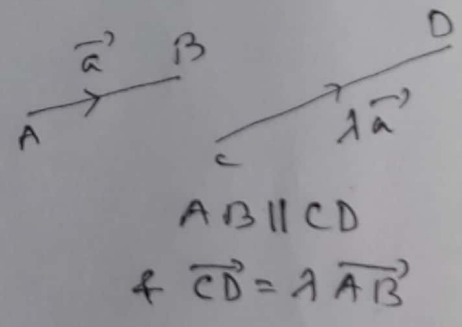 a⃗ B
A
D
λa⃗
C
AB || CD
& CD⃗ = λ AB⃗